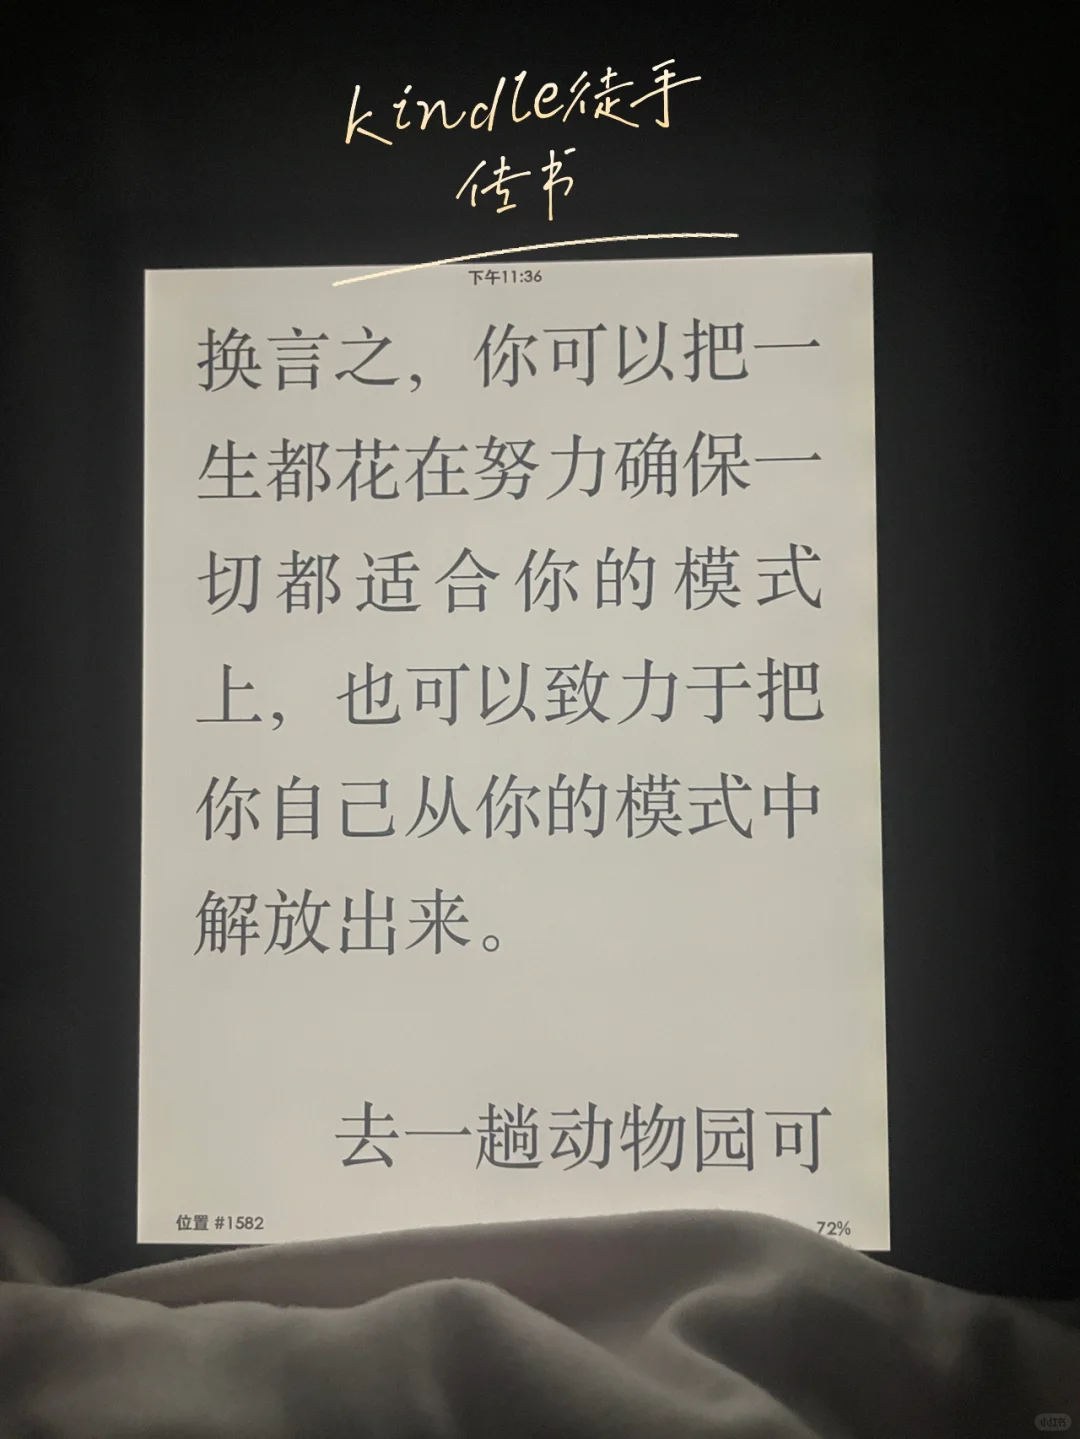 kindle徒手
传书
下午11:36
换言之，你可以把一
生都花在努力确保一
切都适合你的模式
上，也可以致力于把
你自己从你的模式中
解放出来。
去一趟动物园可
位置 #1582
72%
小红书